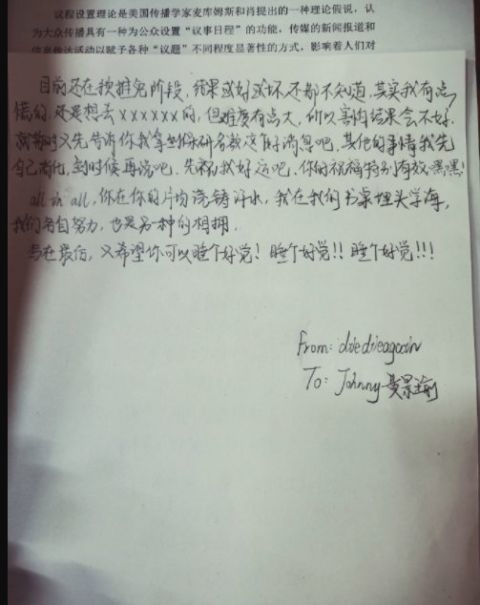 议程设置理论是美国传播学家麦库姆斯和肖提出的一种理论假说，认
为大众传播具有一种为公众设置“议事日程”的功能，传媒的新闻报道和
信息传达活动以赋予各种“议题”不同程度显著性的方式，影响着人们对
目前还在预推免阶段，结果或好或坏还都不知道，其实我有点
惜的，还是想去xxxxxx的，但难度有点大，所以害怕结果会不好，
就暂时先告诉你我拿到保研名额这个好消息吧，其他的事情我先
自己消化，到时候再说吧，先祝我好运吧，你的祝福特别有效，嘿嘿！
all in all，你在你的片场挥洒汗水，我在我的书桌埋头学海，
我们各自努力，也是另一种的相拥．
写在最后，又希望你可以睡个好觉！睡个好觉!！睡个好觉!!！
from：diedieagain
To：Johnny 黄景瑜